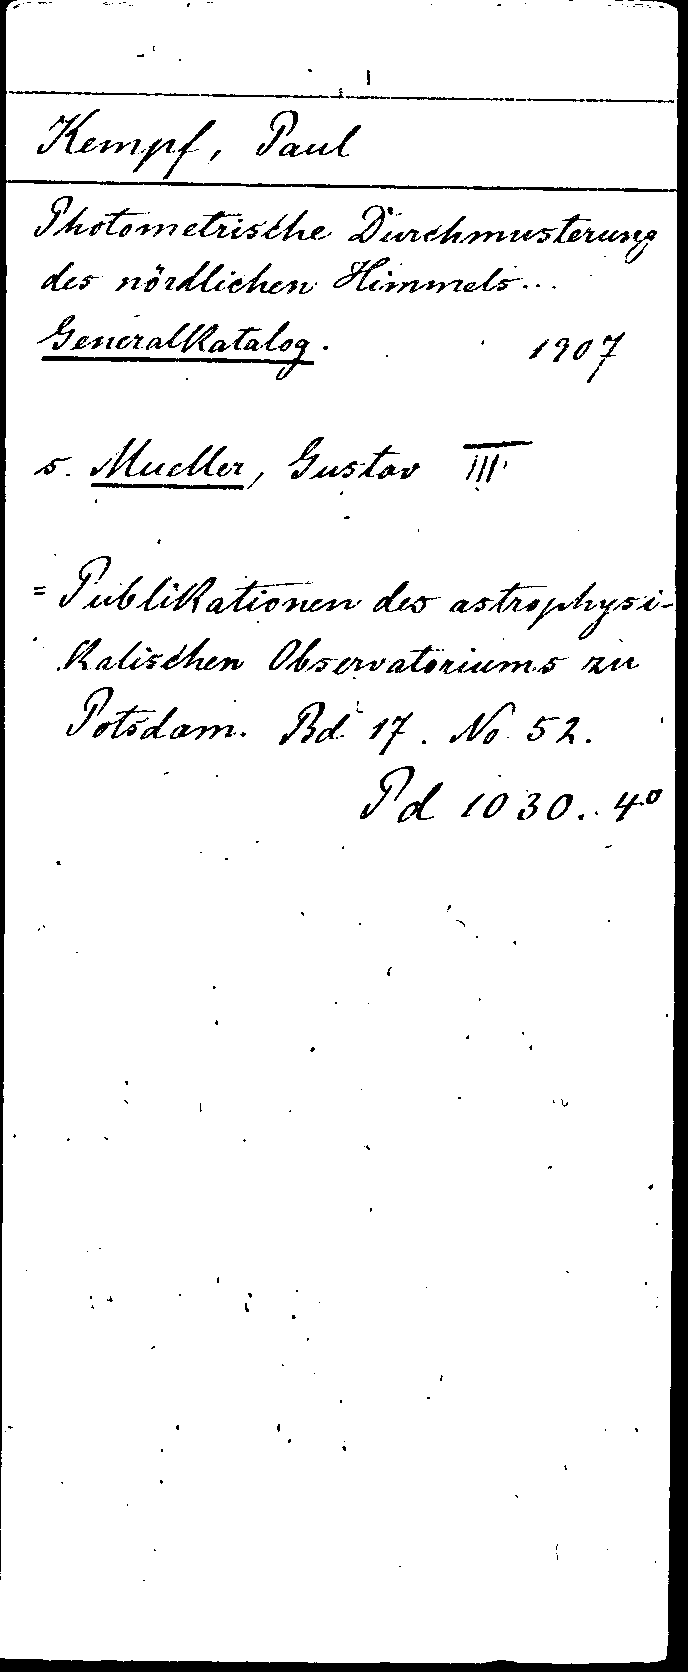 Kempf, Paul
Photometrische Durchmusterung
des nördlichen Himmels...
Generalkatalog. 1907
s. Mueller, Gustav III
= Publikationen des astrophysi-
kalischen Observatoriums zu
Potsdam. Bd 17. No 52.
Pd 1030. 4º